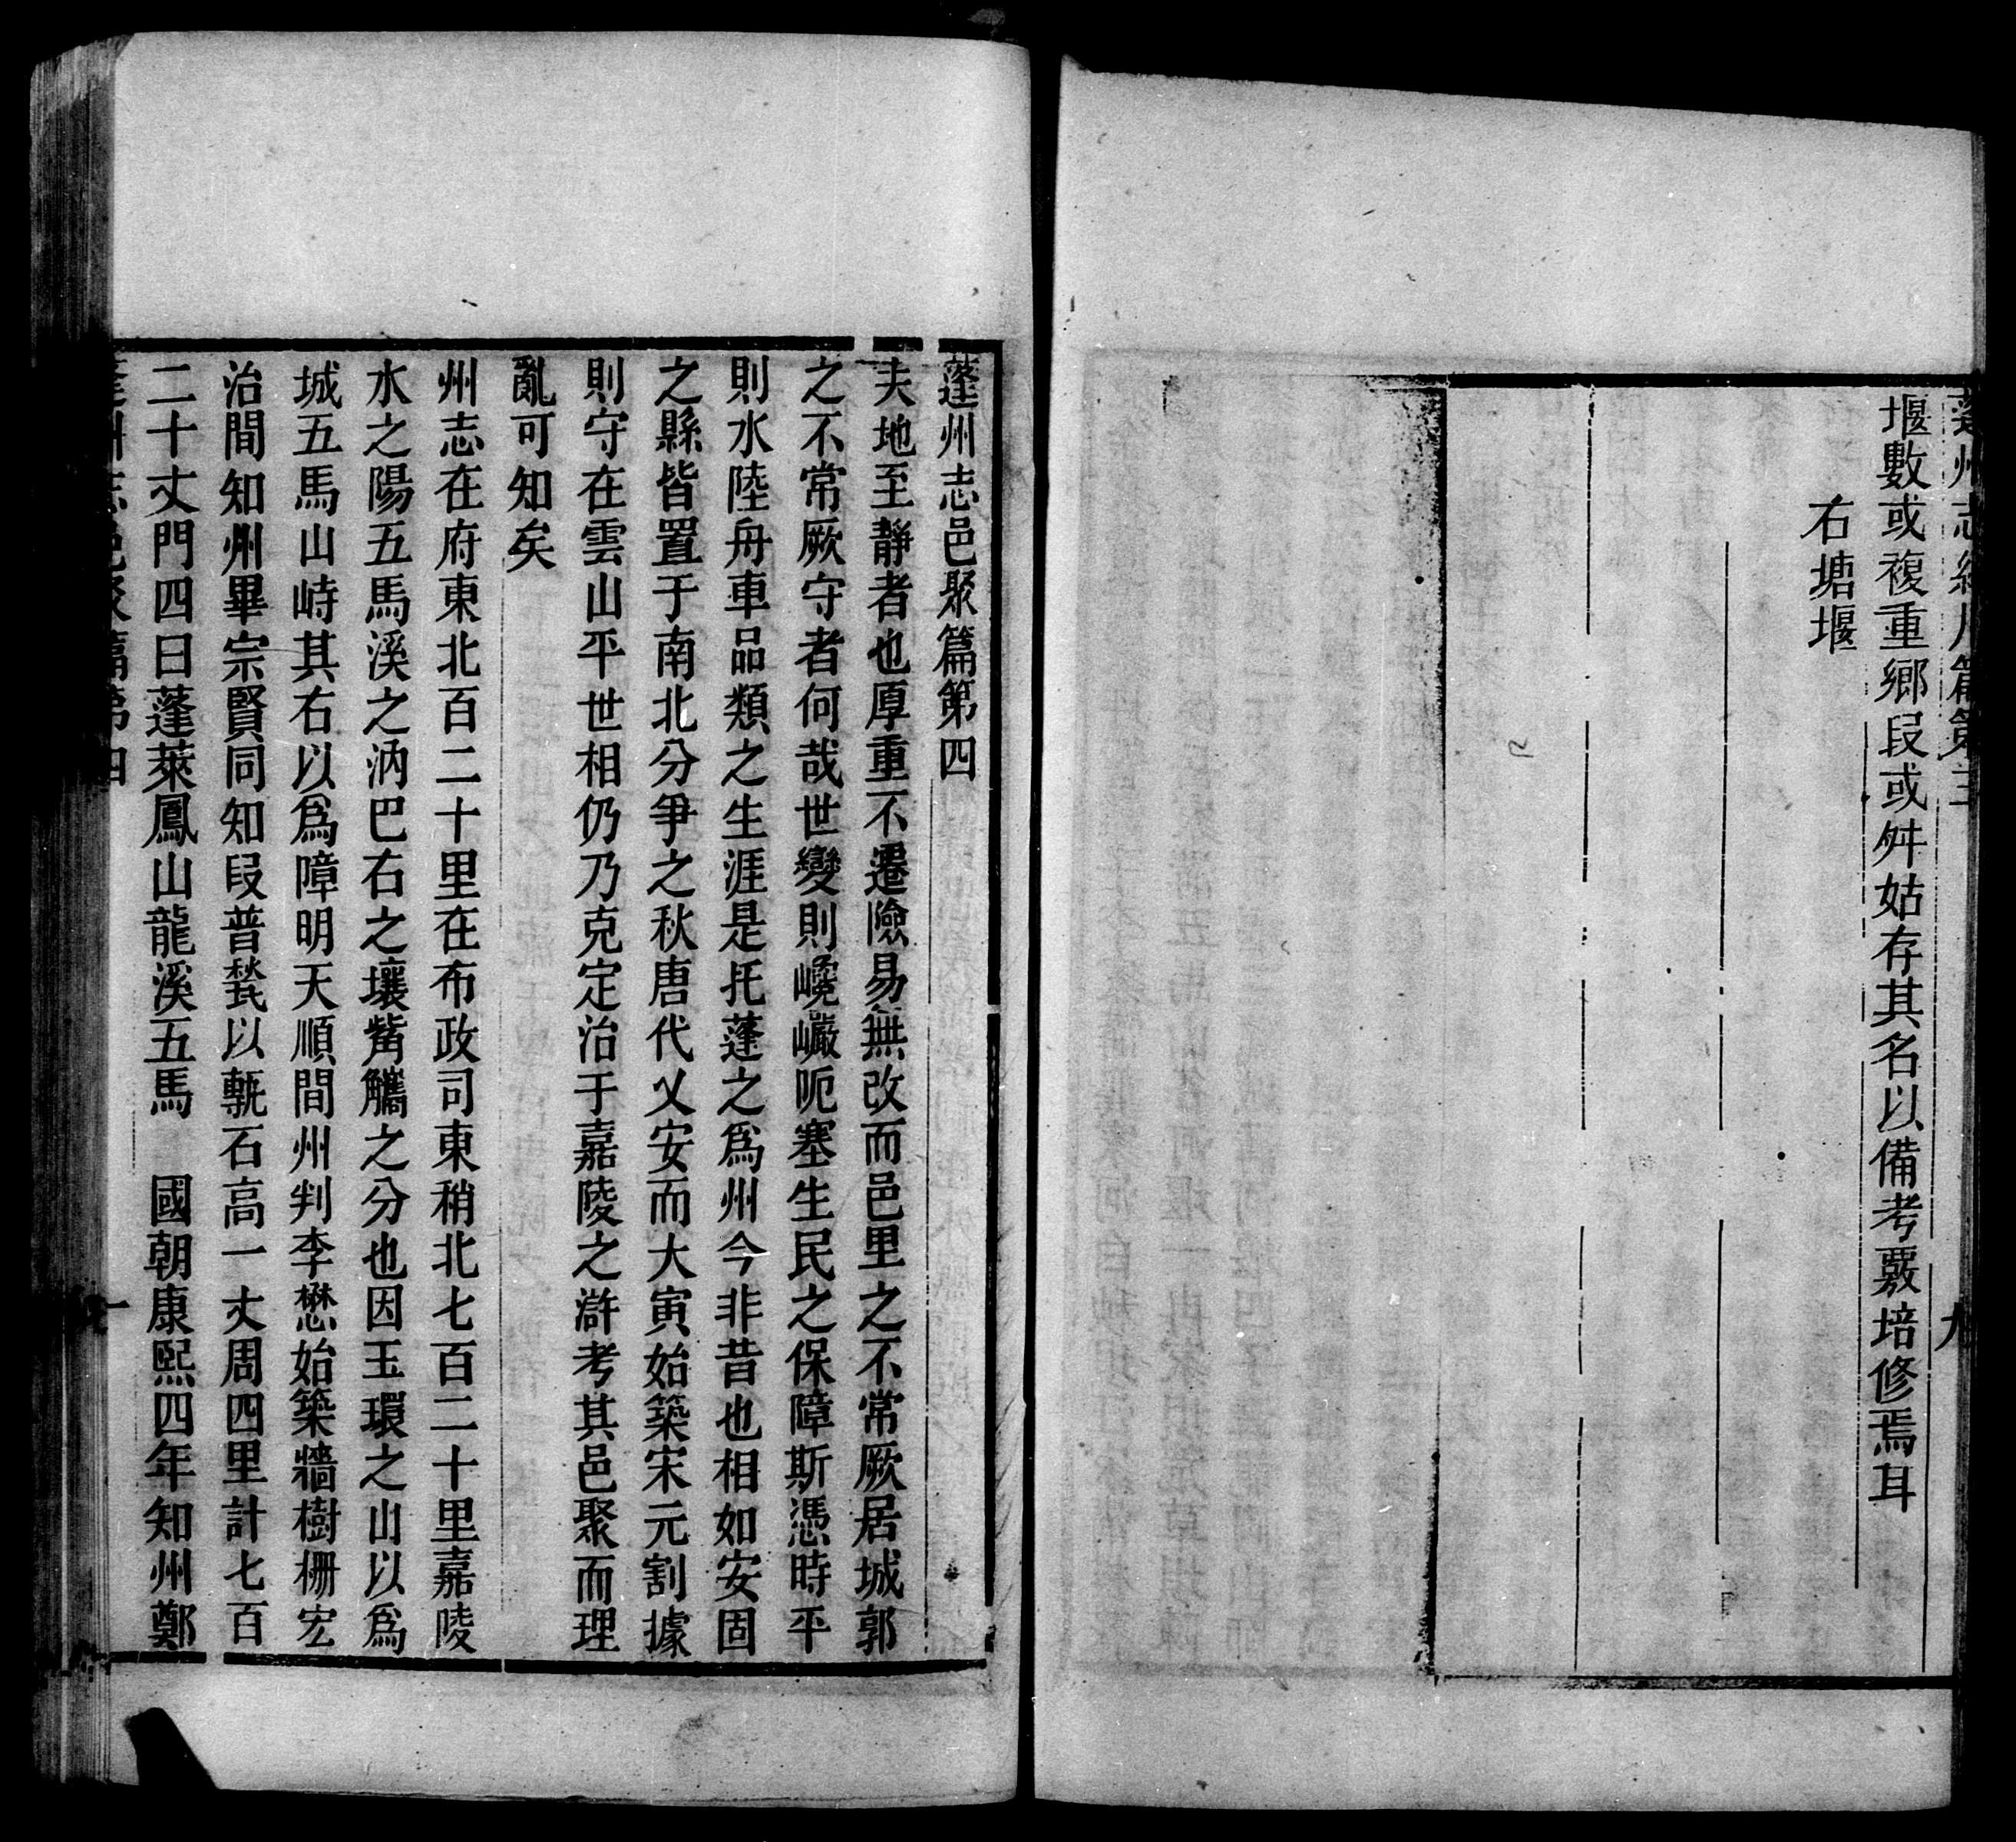 蓬州志 篇第三 九
堰數或複重鄉段或舛姑存其名以備考覈培修焉耳
右塘堰
蓬州志邑聚篇第四
夫地至靜者也厚重不遷險易無改而邑里之不常厥居城郭
之不常厥守者何哉世變則巉巗阨塞生民之保障斯憑時平
則水陸舟車品類之生涯是托蓬之爲州今非昔也相如安固
之縣皆置于南北分爭之秋唐代乂安而大寅始築宋元割據
則守在雲山平世相仍乃克定治于嘉陵之滸考其邑聚而理
亂可知矣
州志在府東北百二十里在布政司東稍北七百二十里嘉陵
水之陽五馬溪之汭巴右之壤觜觿之分也因玉環之山以爲
城五馬山峙其右以爲障明天順間州判李懋始築牆樹柵宏
治間知州畢宗賢同知段普甃以甎石高一丈周四里計七百
二十丈門四曰蓬萊鳳山龍溪五馬 國朝康熙四年知州鄭
蓬州志邑聚篇第四 一